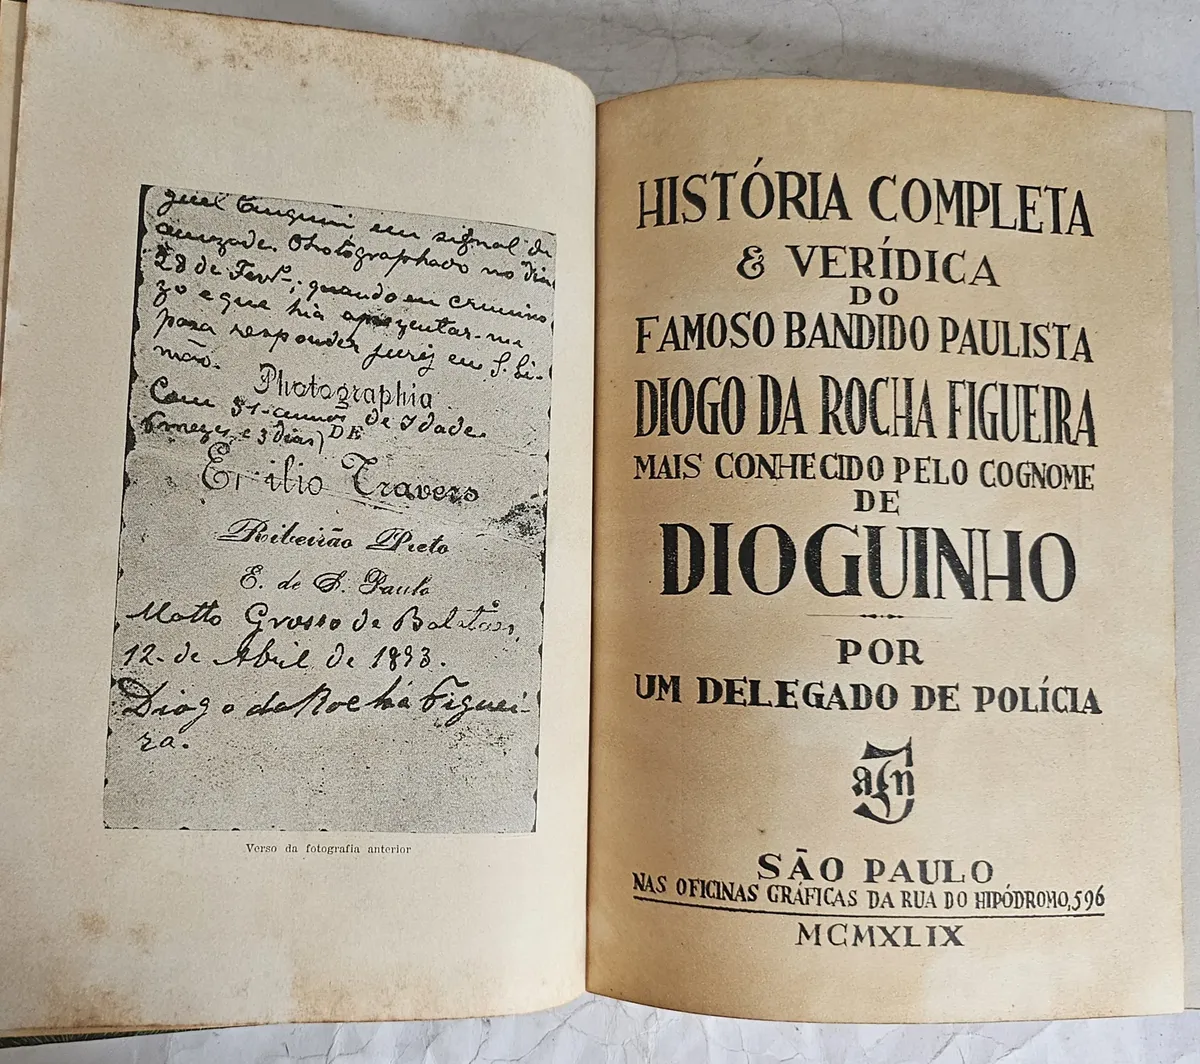 em signal de
amizade. Photographado no dia
28 de Fevrº; quando eu crimino
zo e que hia aprezentar-me
para responder jurij em S. Si-
mão.
Photographia
Com 31 annos de Idade
6 mezes, e 3 dias)
DE
Ernilio Travero
Ribeirão Preto
E. de S. Paulo
Matto Grosso de Batataes,
12 de Abril de 1893.
Diogo da Rocha Figuei-
ra.
Verso da fotografia anterior
HISTÓRIA COMPLETA
& VERÍDICA
DO
FAMOSO BANDIDO PAULISTA
DIOGO DA ROCHA FIGUEIRA
MAIS CONHECIDO PELO COGNOME
DE
DIOGUINHO
POR
UM DELEGADO DE POLÍCIA
SÃO PAULO
NAS OFICINAS GRÁFICAS DA RUA DO HIPÓDROMO, 596
MCMXLIX